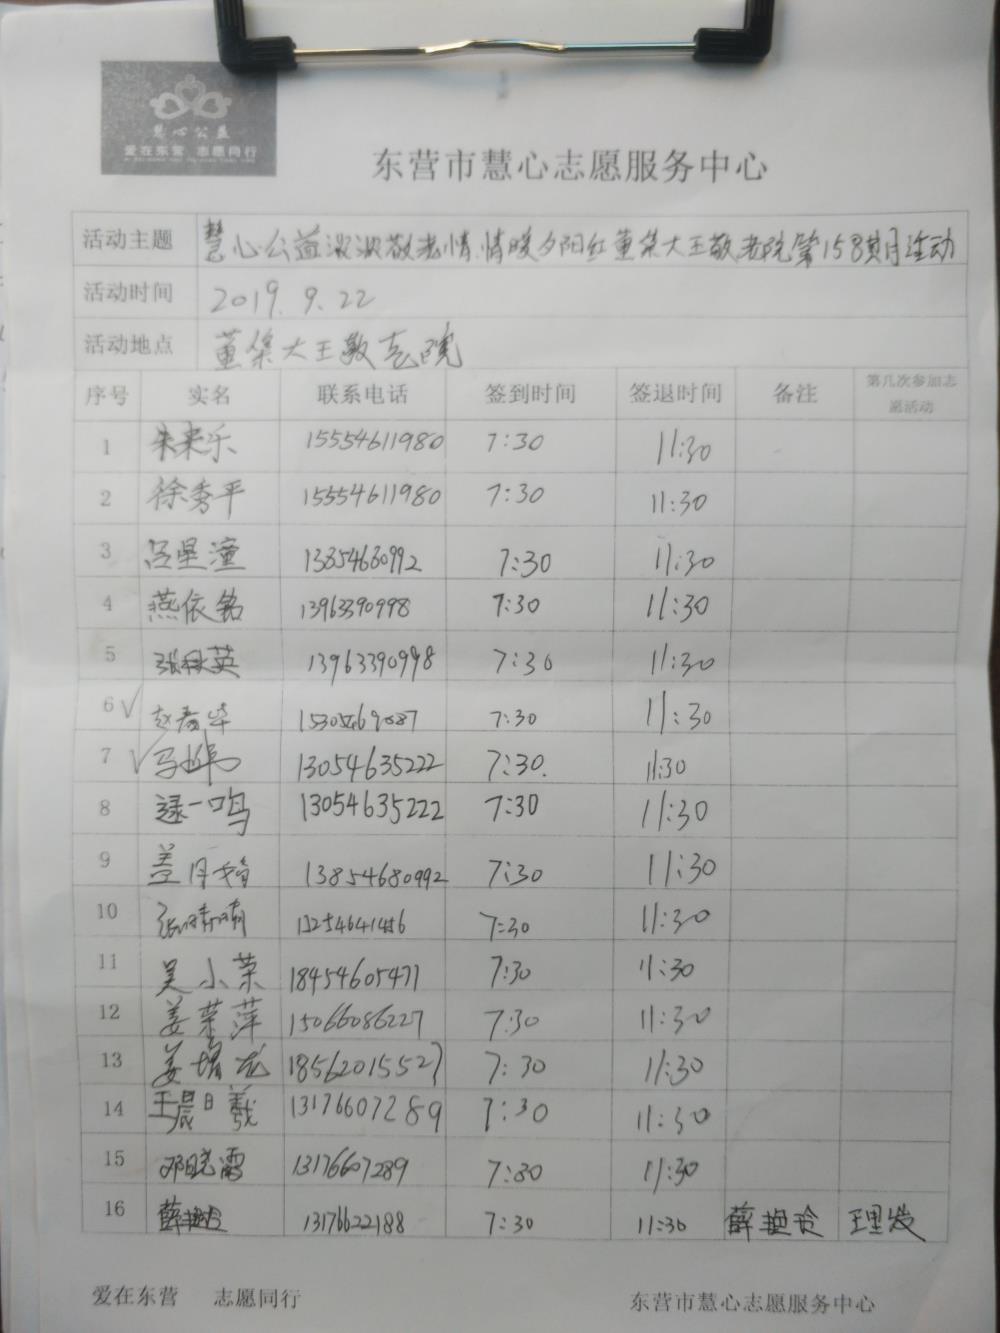 慧心公益
爱在东营 志愿同行
东营市慧心志愿服务中心
活动主题 慧心公益浓浓敬老情.情暖夕阳红董集大王敬老院第158期月活动
活动时间 2019.9.22
活动地点 董集大王敬老院
序号 实名 联系电话 签到时间 签退时间 备注 第几次参加志愿活动
1 朱来乐 15554611980 7:30 11:30
2 徐秀平 15554611980 7:30 11:30
3 吕星潼 13854680992 7:30 11:30
4 燕依铭 13963390998 7:30 11:30
5 张秋英 13963390998 7:30 11:30
6 ✓ 赵春华 7:30 11:30
7 ✓ 13054635222 7:30. 11:30
8 逯一鸣 13054635222 7:30 11:30
9 13854680992 7:30 11:30
10 张晴晴 7:30 11:30
11 吴小荣 18454605471 7:30 11:30
12 姜荣萍 15066086227 7:30 11:30
13 姜增龙 18562015527 7:30 11:30
14 王晨曦 13176607289 7:30 11:30
15 邓晓雷 13176607289 7:30 11:30
16 薛艳玲 13176622188 7:30 11:30 薛艳玲 理发
爱在东营 志愿同行 东营市慧心志愿服务中心